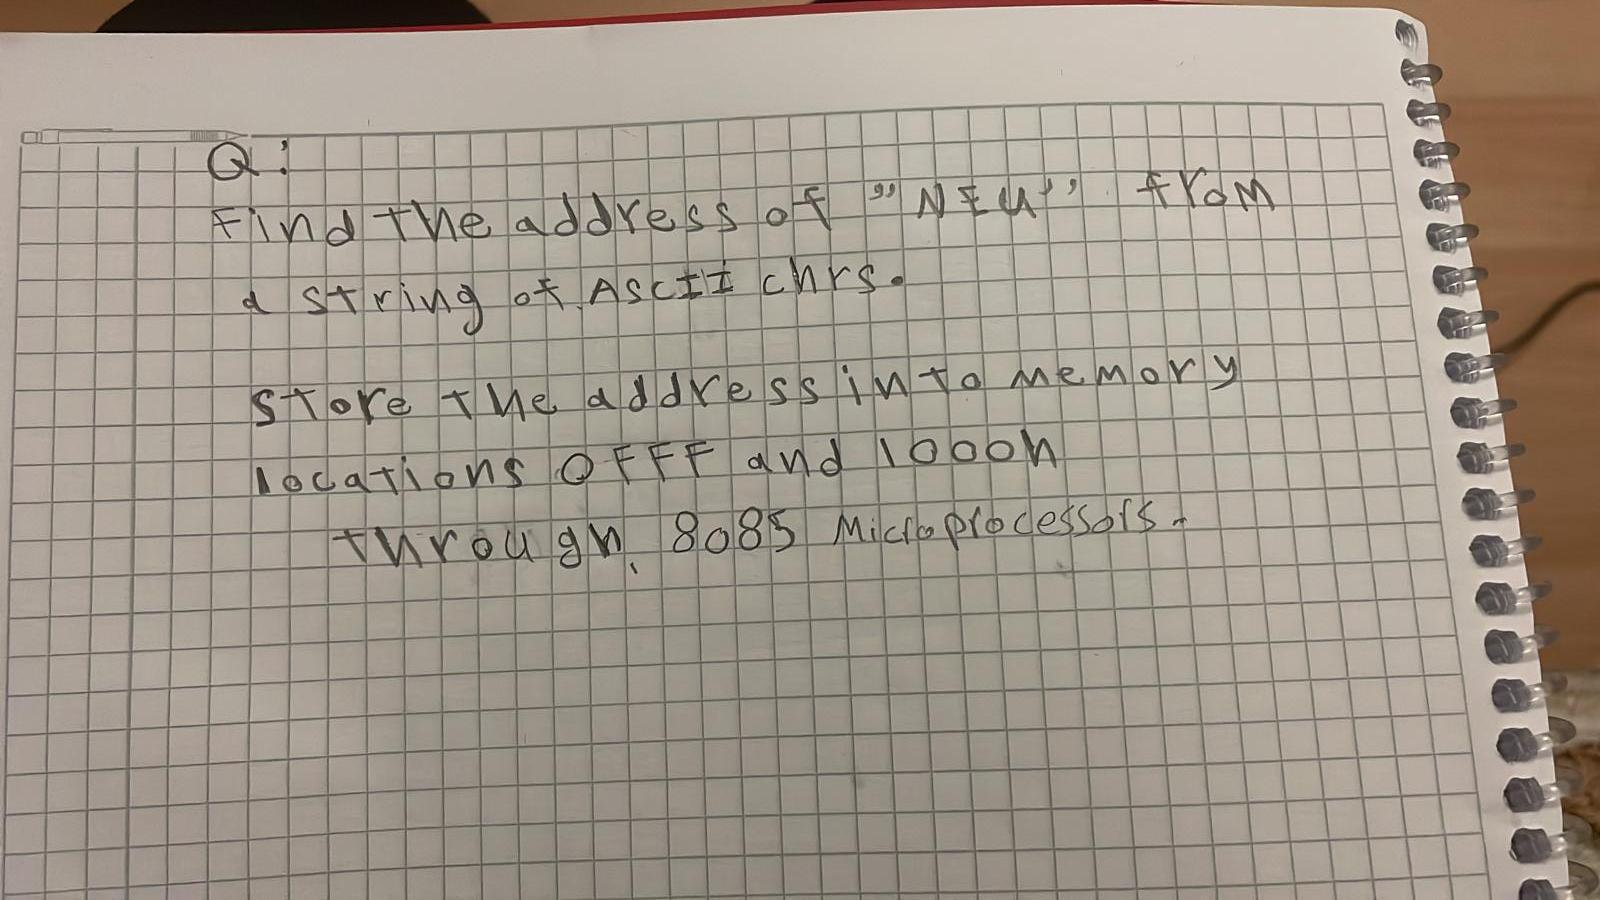 Q:
Find the address of "NEU" from
a string of ASCII chrs.
Store the address into memory
locations OFFF and 1000h
through 8085 Microprocessors.